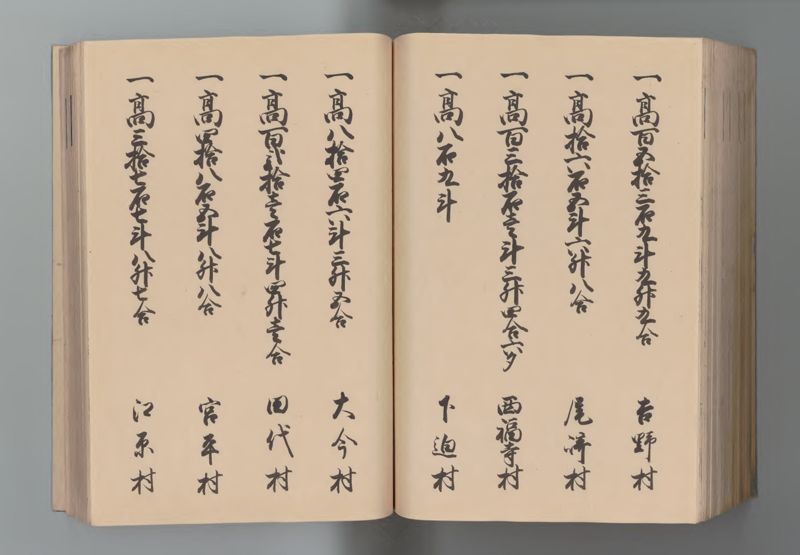 一高百五拾三石九斗九升九合 吉野村
一高拾六石五斗六升八合 尾崎村
一高百三拾石壱斗三升四合六夕 西福寺村
一高八石九斗 下迫村
一高八拾四石六斗三升五合 大今村
一高百弐拾壱石七斗四升壱合 田代村
一高四拾八石五斗八升八合 宮平村
一高三拾七石七斗八升七合 江原村